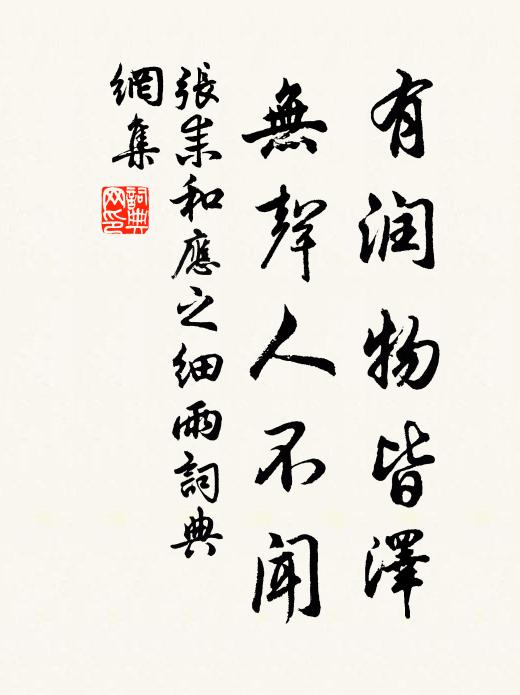 有润物皆澤
無聲人不聞
張耒和應之細雨詞典
網集
詞典
网印